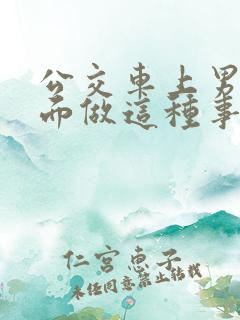 公交車上男
而做這種事
仁宮惠子
未經同意禁止轉載